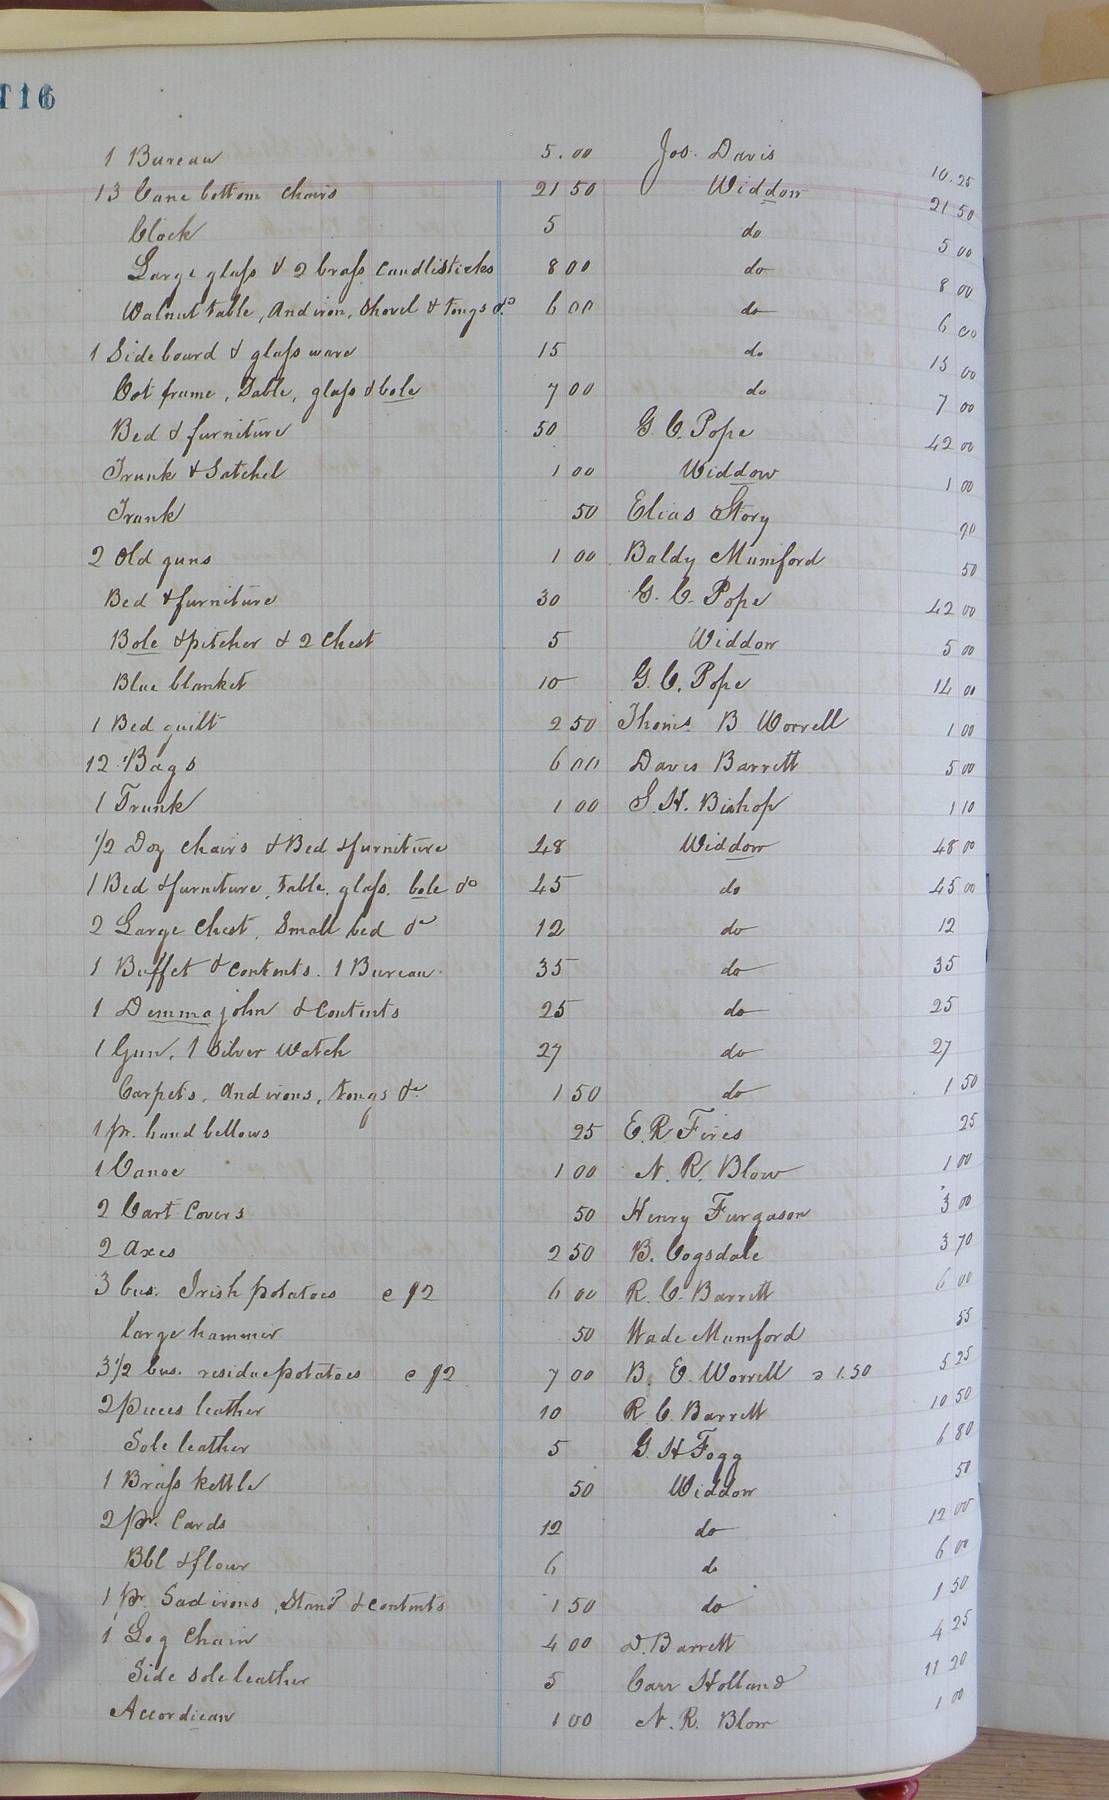 116
1 Bureau 5.00 Jos. Davis 10.25
13 Cane bottom chairs 21 50 Widdow 21 50
Clock 5 do 5 00
Large glass & 2 brass candlisticks 8 00 do 8 00
Walnut table, And iron, Shovel & tongs &c 6 00 do 6 00
1 Side board & glass ware 15 do 15 00
Cot frame, Table, glass & bole 7 00 do 7 00
Bed & furniture 50 G. C. Pope 42 00
Trunk & Satchel 1 00 Widdow 1 00
Trunk 50 Elias Story 90
2 Old guns 1 00 Baldy Mumford 50
Bed & furniture 30 G. C. Pope 42 00
Bole & pitcher & 2 Chest 5 Widdow 5 00
Blue blanket 10 G. C. Pope 14 00
1 Bed quilt 2 50 Thoms. B Worrell 1 00
12 Bags 6 00 Davis Barrett 5 00
1 Trunk 1 00 S. H. Bishop 1 10
1/2 Doz chairs & Bed & furniture 48 Widdow 48 00
1 Bed & furniture, table, glass, bole &c 45 do 45 00
2 Large Chest, Small bed &c 12 do 12
1 Buffet & contents. 1 Bureau 35 do 35
1 Demmajohn & Contents 25 do 25
1 Gun, 1 Silver Watch 27 do 27
Carpets, And irons, tongs &c 1 50 do 1 50
1 pr. hand bellows 25 E. R. Fires 25
1 Canoe 1 00 N. R. Blow 1 00
2 Cart Covers 50 Henry Furgason 3 00
2 Axes 2 50 B. Cogsdale 3 70
3 bus. Irish potatoes @ $2 6 00 R. C. Barrett 6 00
large hammer 50 Wade Mumford 55
3 1/2 bus. residue potatoes @ $2 7 00 B. E. Worrell @ 1.50 5 25
2 pieces leather 10 R. C. Barrett 10 50
Sole leather 5 G. H Fogg 6 80
1 Brass kettle 50 Widdow 50
2 pr. Cards 12 do 12 00
Bbl & flour 6 do 6 00
1 pr. Sad irons, Stand & contents 1 50 do 1 50
1 Log Chain 4 00 D. Barrett 4 25
Side sole leather 5 Carr Holland 11 20
Accordiean 1 00 N. R. Blow 1 00